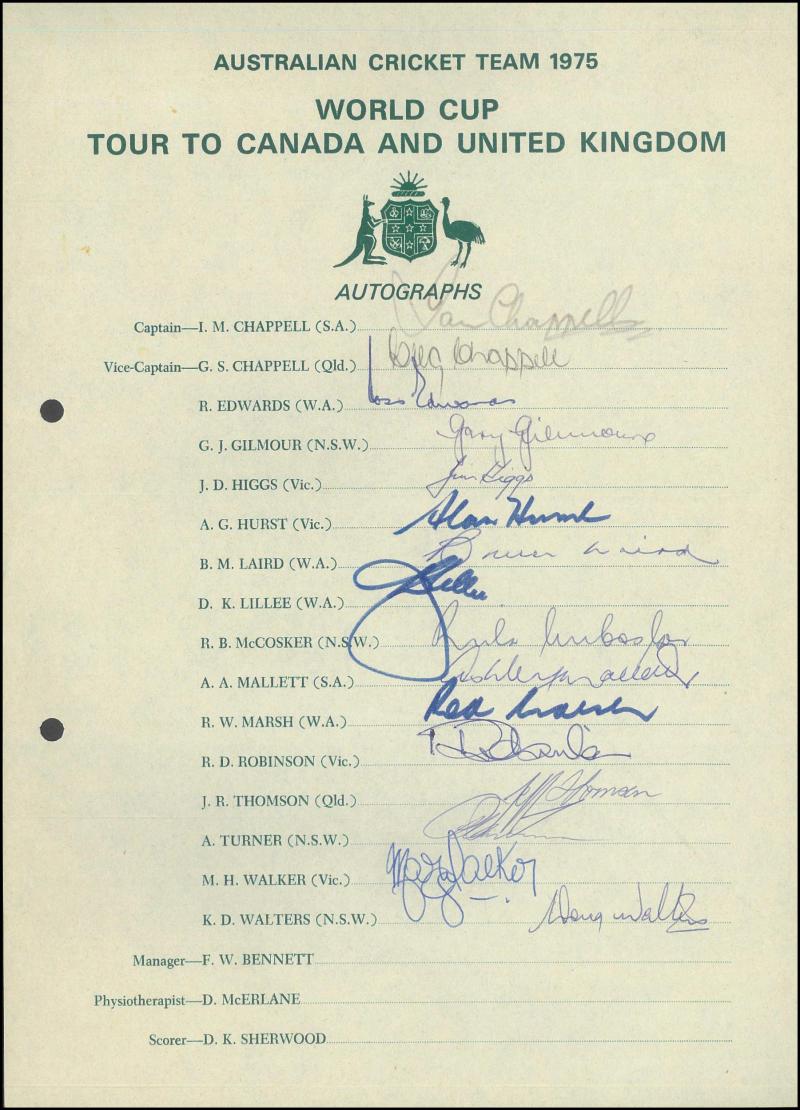 AUSTRALIAN CRICKET TEAM 1975
WORLD CUP
TOUR TO CANADA AND UNITED KINGDOM
AUTOGRAPHS
Captain—I. M. CHAPPELL (S.A.) Ian Chappell
Vice-Captain—G. S. CHAPPELL (Qld.) Greg Chappell
R. EDWARDS (W.A.) Ross Edwards
G. J. GILMOUR (N.S.W.) Gary Gilmour
J. D. HIGGS (Vic.) Jim Higgs
A. G. HURST (Vic.) Alan Hurst
B. M. LAIRD (W.A.) Bruce Laird
D. K. LILLEE (W.A.) Lillee
R. B. McCOSKER (N.S.W.)
A. A. MALLETT (S.A.) Ashley Mallett
R. W. MARSH (W.A.) Rod Marsh
R. D. ROBINSON (Vic.) R D Robinson
J. R. THOMSON (Qld.) Thomson
A. TURNER (N.S.W.)
M. H. WALKER (Vic.) Max Walker
K. D. WALTERS (N.S.W.) Doug Walters
Manager—F. W. BENNETT
Physiotherapist—D. McERLANE
Scorer—D. K. SHERWOOD